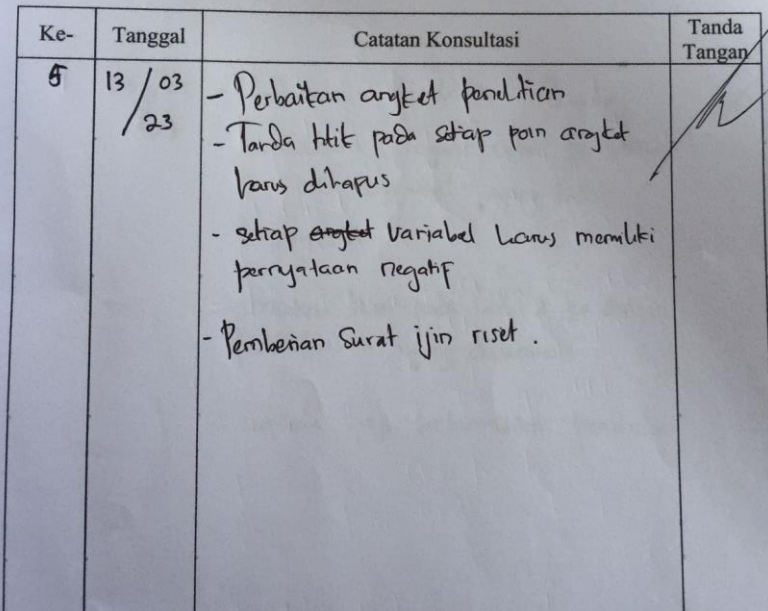 Ke- Tanggal Catatan Konsultasi Tanda Tangan
5 13/03/23
- Perbaikan angket penelitian
- Tanda titik pada setiap poin angket
harus dihapus
- setiap angket variabel harus memiliki
pernyataan negatif
- Pemberian Surat ijin riset.